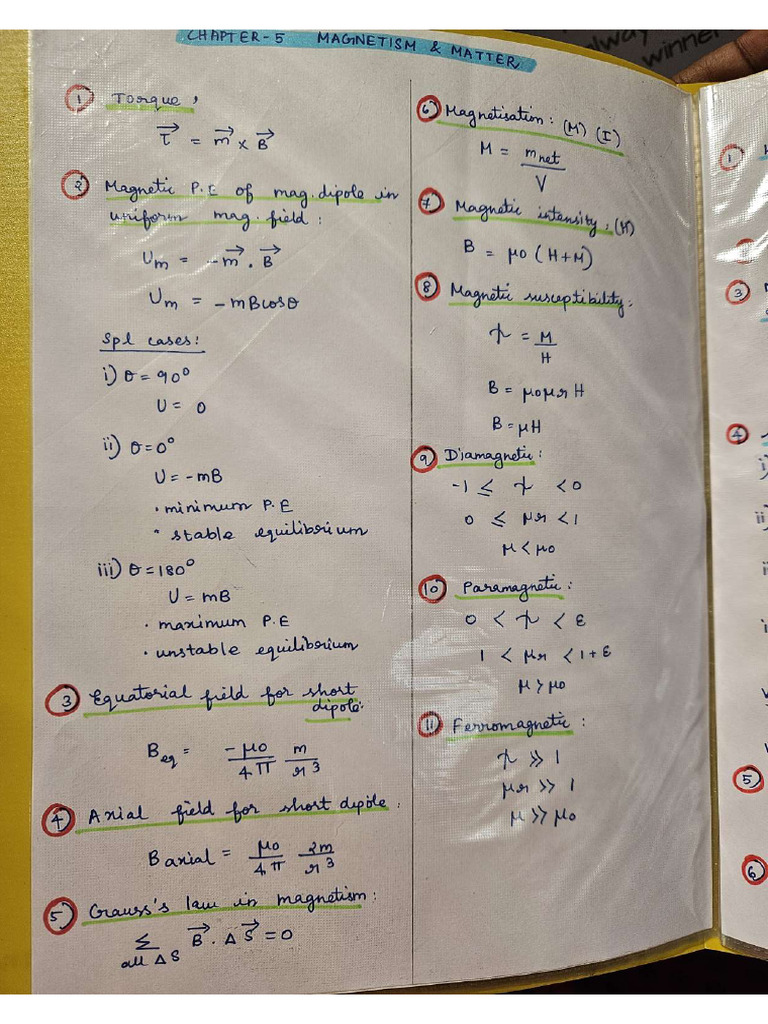 always
winner
CHAPTER-5 MAGNETISM & MATTER
① Torque,
τ⃗ = m⃗ × B⃗
② Magnetic P.E of mag. dipole in
uniform mag. field :
Um = -m⃗ . B⃗
Um = -mBcosθ
Spl cases:
i) θ = 90°
U = 0
ii) θ = 0°
U = -mB
• minimum P.E
• stable equilibrium
iii) θ = 180°
U = mB
• maximum P.E
• unstable equilibrium
③ Equatorial field for short
dipole:
Beq = -μ0/4π m/r³
④ Axial field for short dipole :
Baxial = μ0/4π 2m/r³
⑤ Gauss's law in magnetism :
Σ B⃗ . ΔS⃗ = 0
all ΔS
⑥ Magnetisation: (M) (I)
M = mnet/V
⑦ Magnetic intensity, (H)
B = μ0 (H+M)
⑧ Magnetic susceptibility:
χ = M/H
B = μ0μr H
B = μH
⑨ Diamagnetic :
-1 ≤ χ < 0
0 ≤ μr < 1
μ < μ0
⑩ Paramagnetic :
0 < χ < ε
1 < μr < 1+ε
μ > μ0
⑪ Ferromagnetic :
χ >> 1
μr >> 1
μ >> μ0
①
③
④
i)
ii)
⑤
⑥